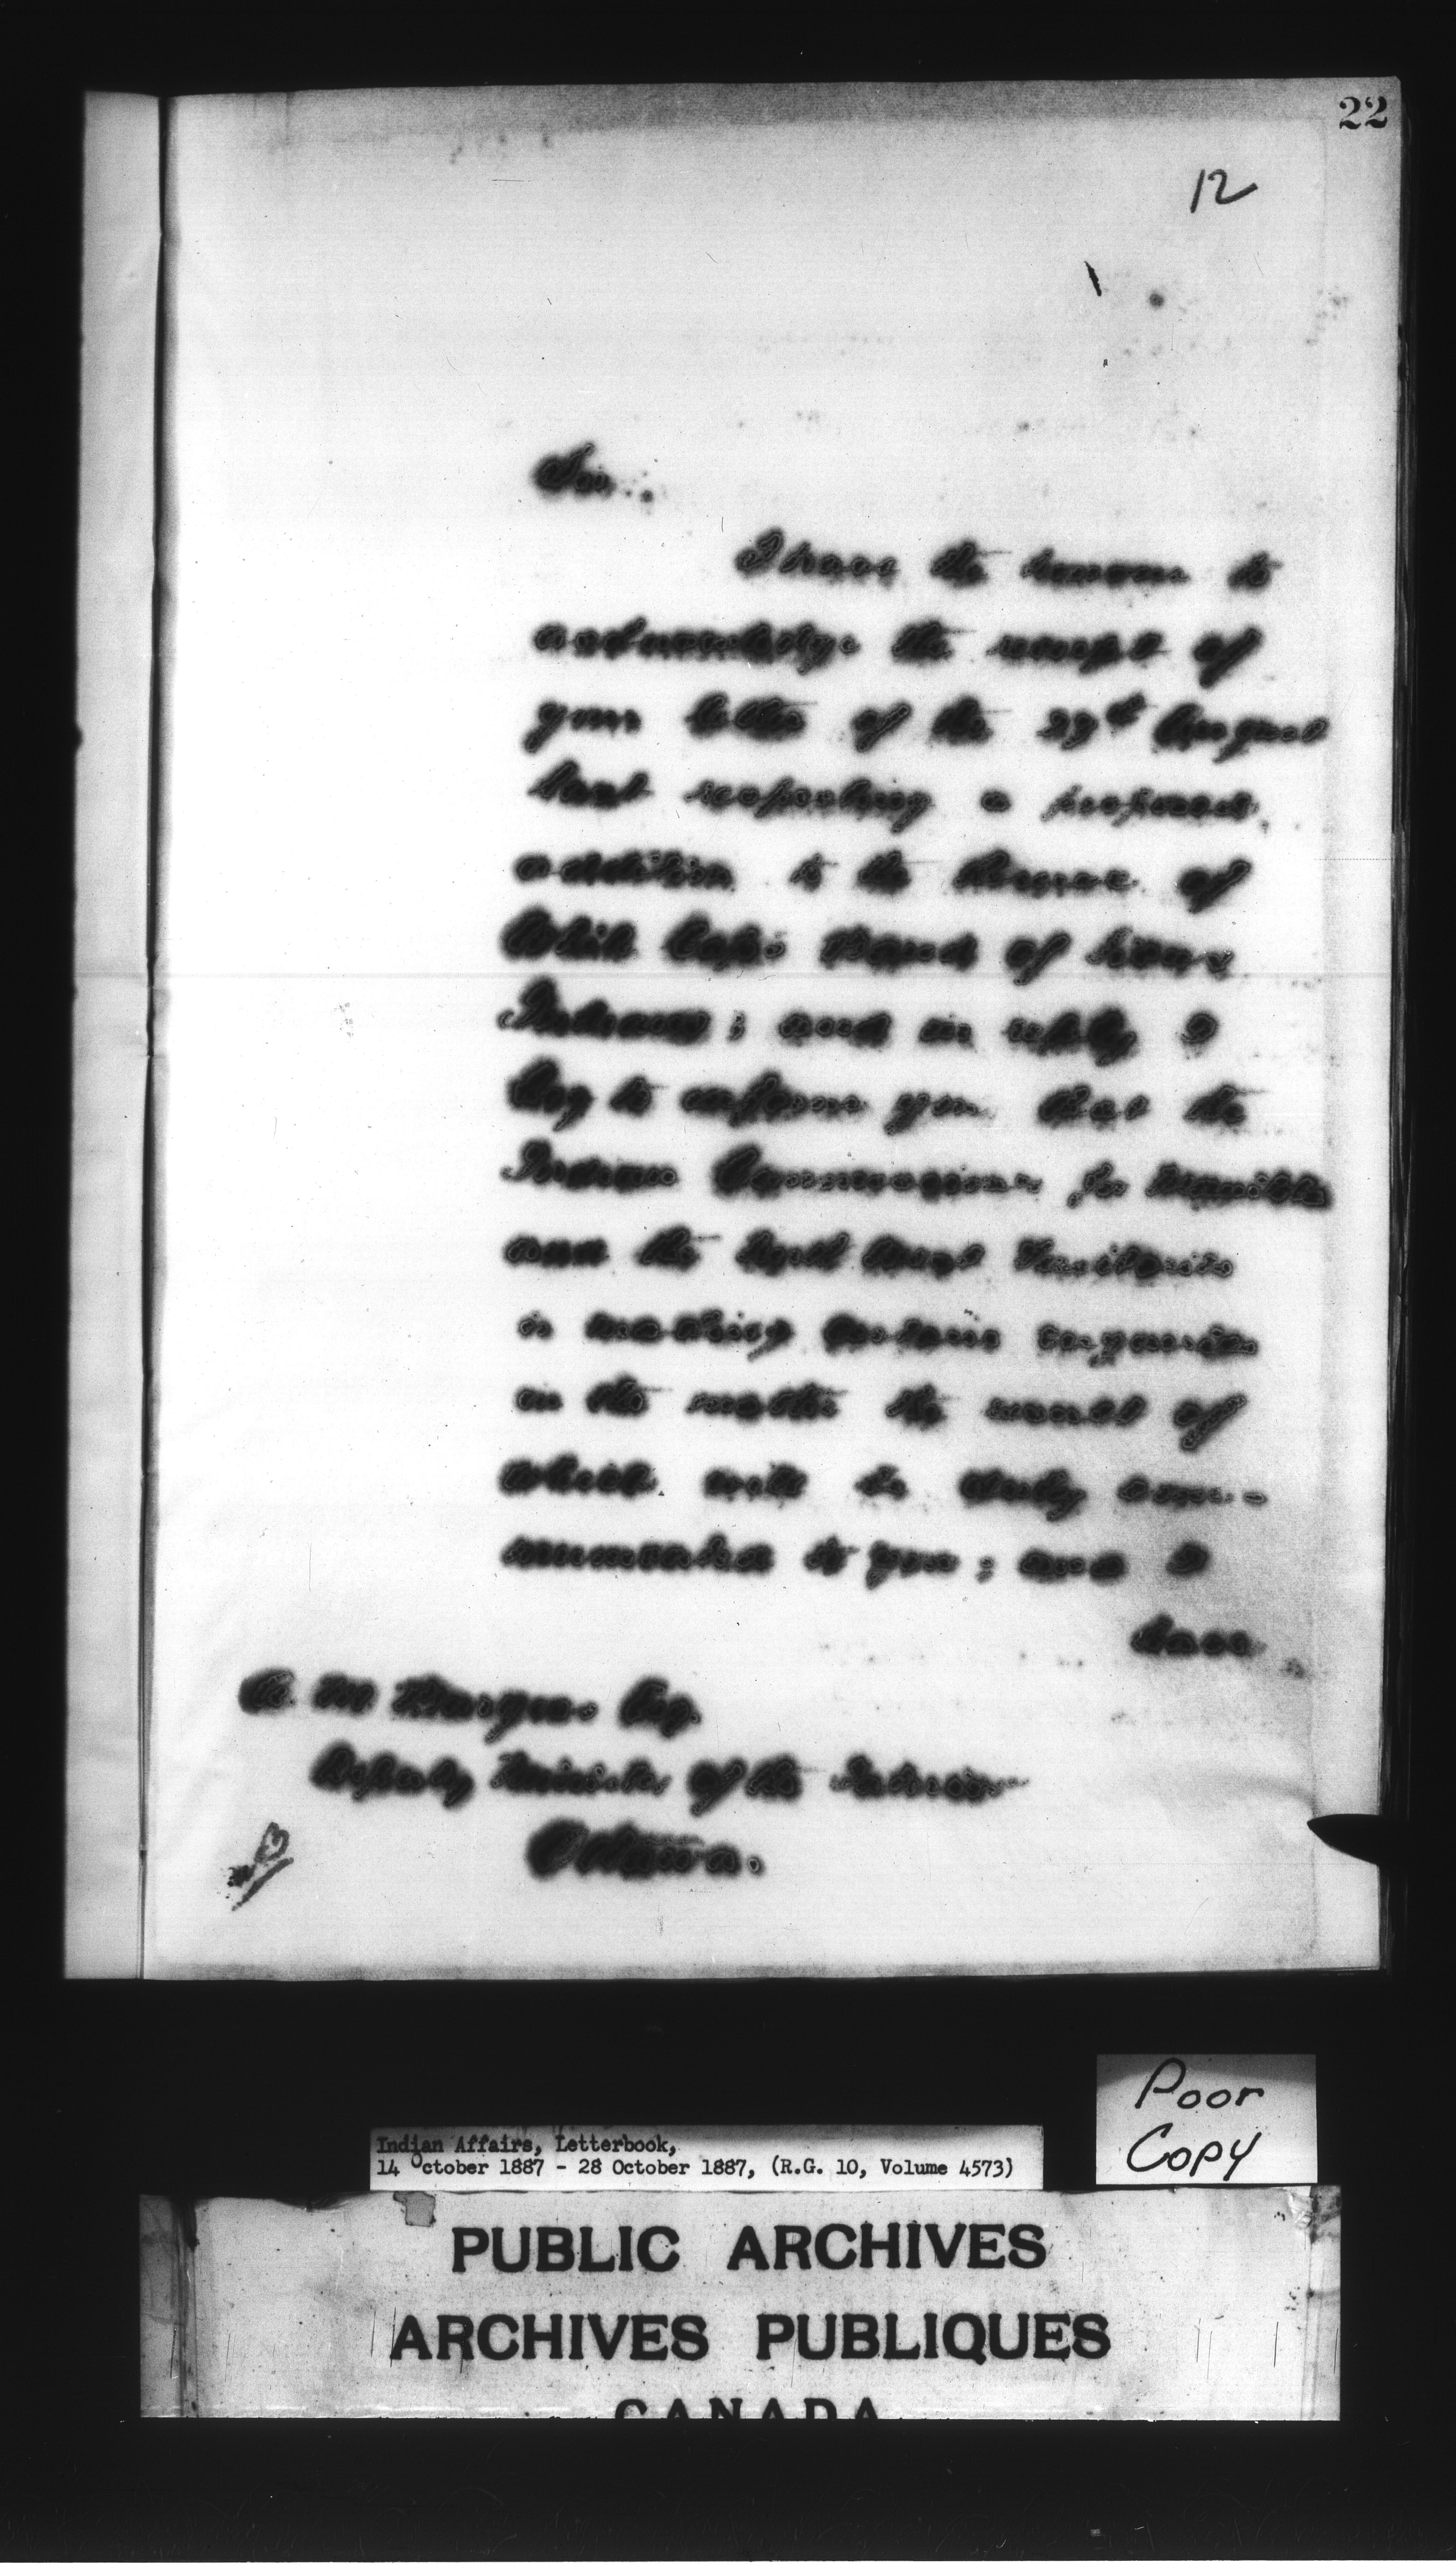 22
12
Sir,
I have the honour to
acknowledge the receipt of
your letter of the 29th August
last respecting a proposed
addition to the Reserve of
White Cap's Band of Sioux
Indians; and in reply I
beg to inform you that the
Indian Commissioner for Manitoba
and the North West Territories
is making certain inquiries
in the matter the result of
which will be duly com-
municated to you; and I
have
A. M. Burgess Esq.
Deputy Minister of the Interior
Ottawa.
Poor
Copy
Indian Affairs, Letterbook,
14 October 1887 - 28 October 1887, (R.G. 10, Volume 4573)
PUBLIC ARCHIVES
ARCHIVES PUBLIQUES
CANADA